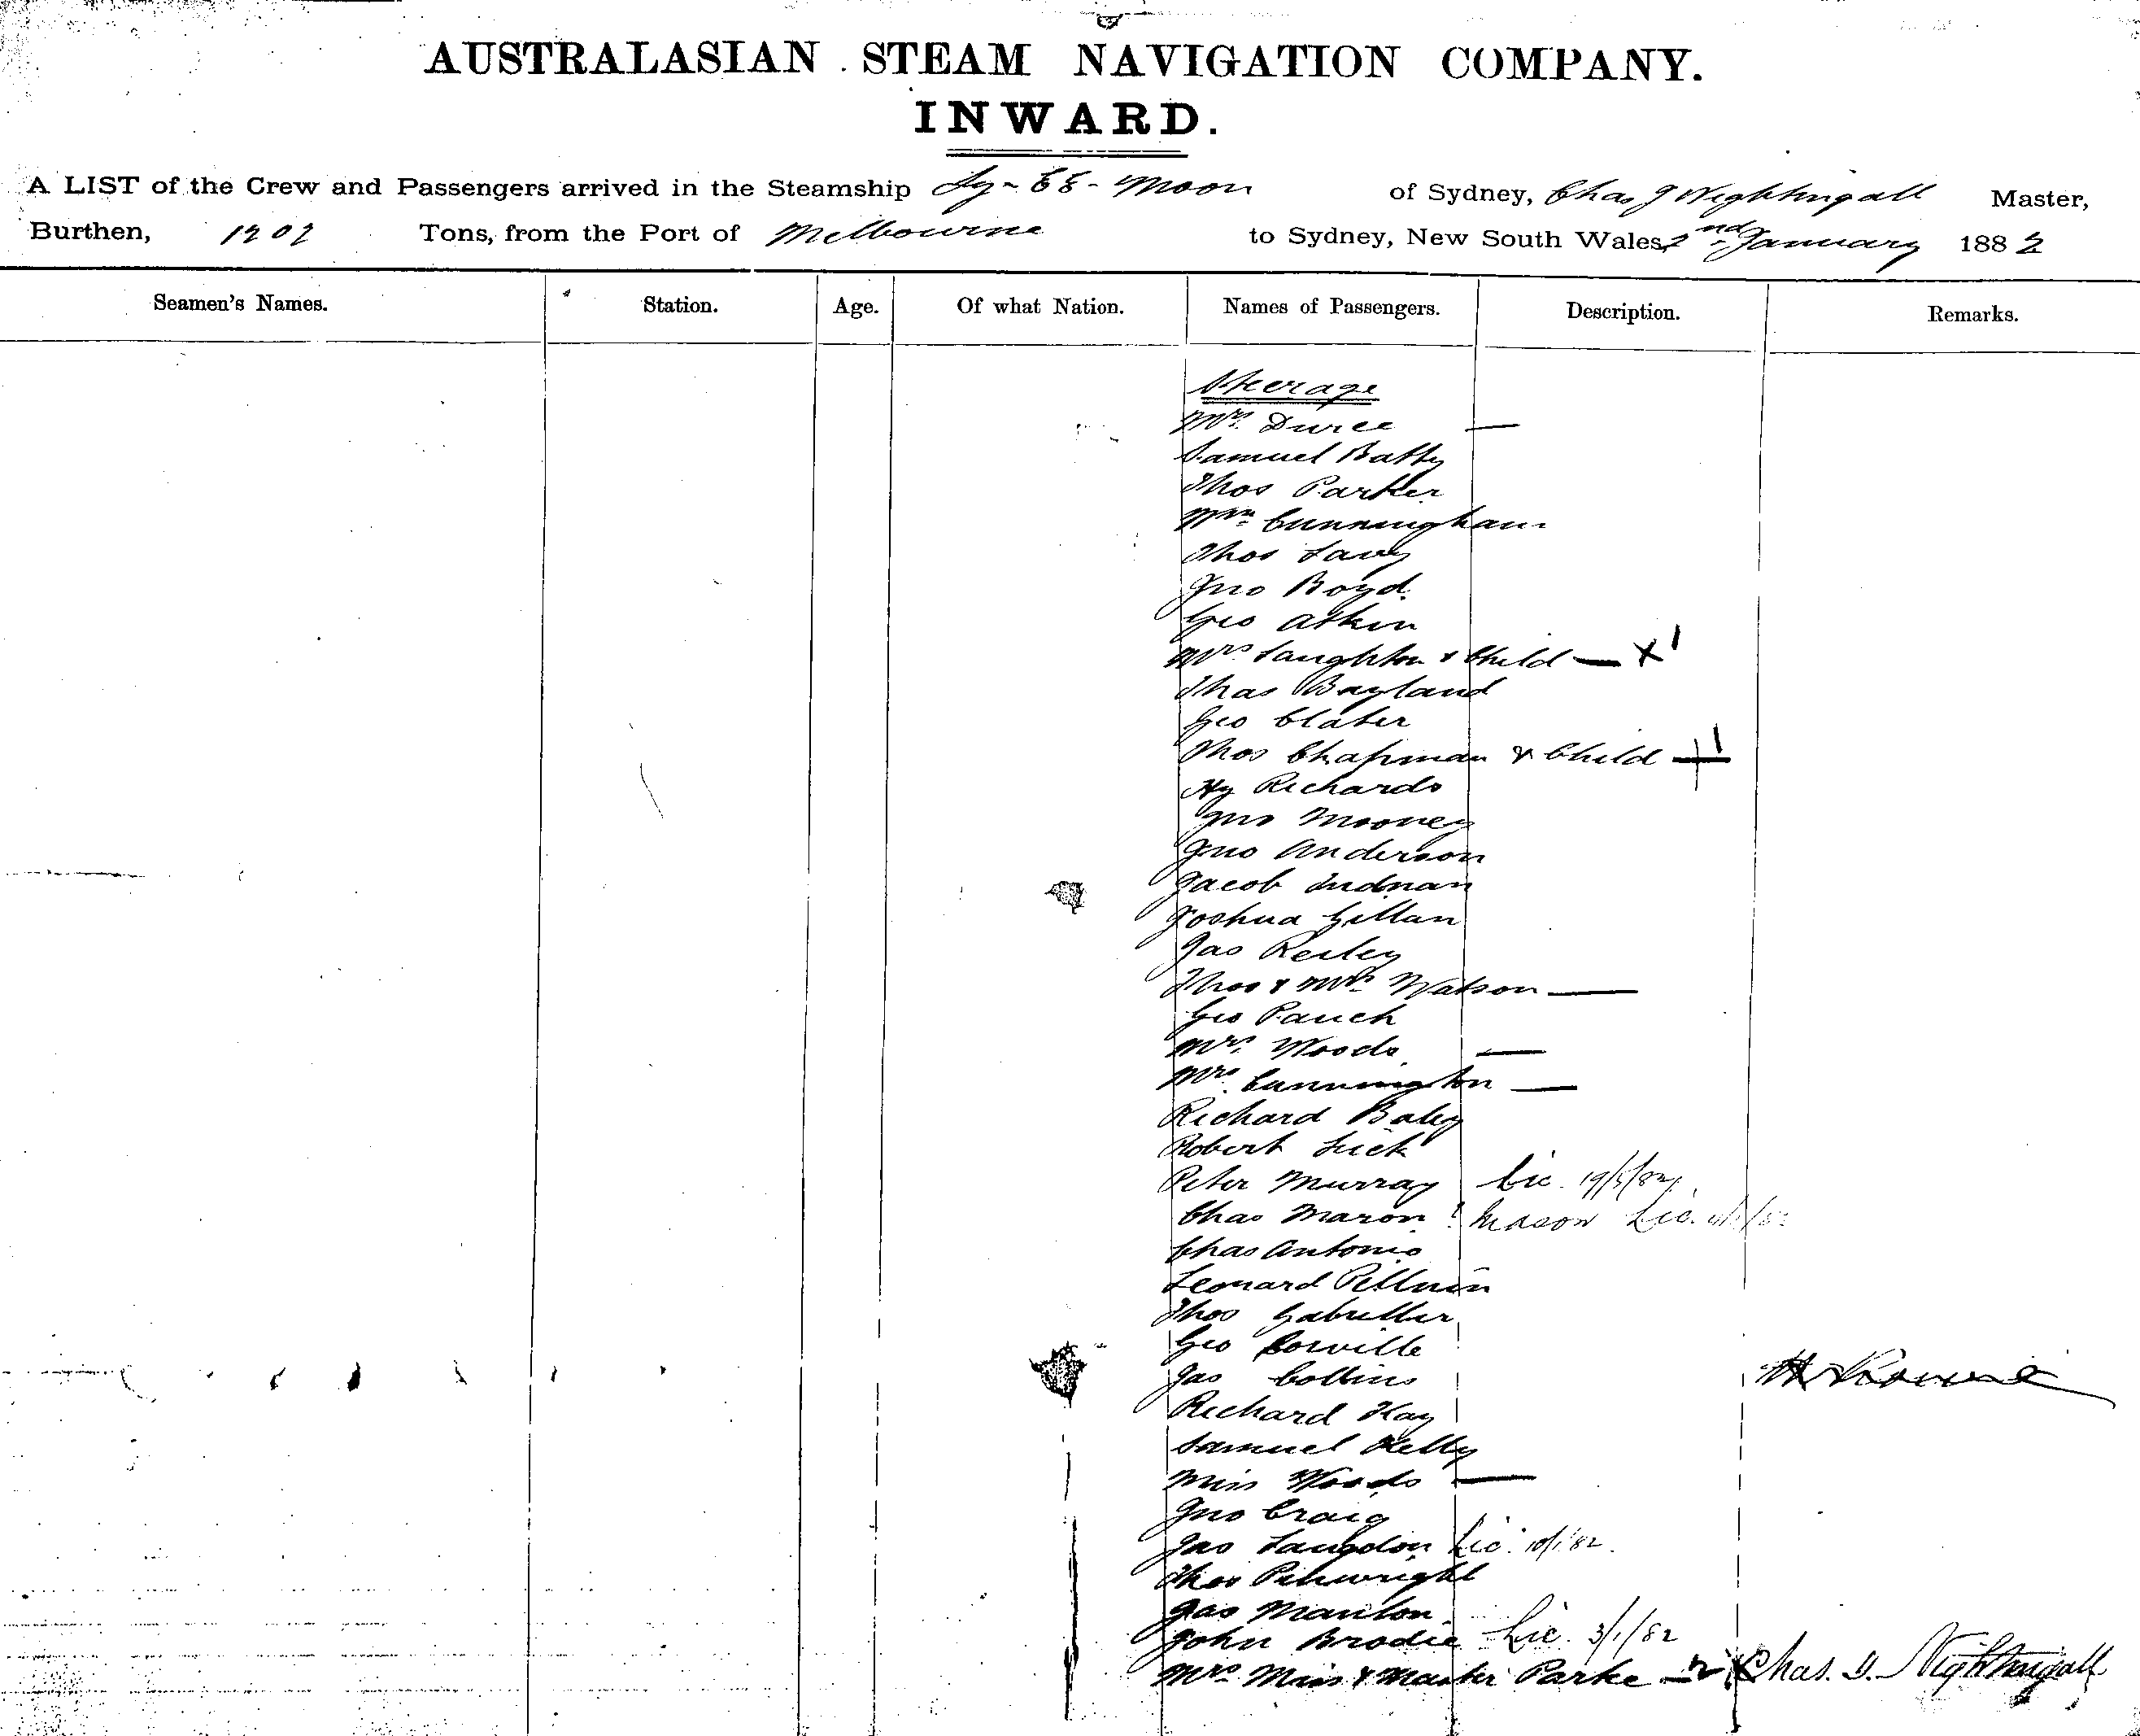 AUSTRALASIAN STEAM NAVIGATION COMPANY.
INWARD.
A LIST of the Crew and Passengers arrived in the Steamship Ly-EE-Moon of Sydney, Chas J Nightingall Master,
Burthen, 1202 Tons, from the Port of Melbourne to Sydney, New South Wales, 2nd January 1882
Seamen's Names. Station. Age. Of what Nation. Names of Passengers. Description. Remarks.
Steerage
Mrs. Duree —
Samuel Batty
Thos Parker
Cunningham
Thos Lavy
Jno Boyd.
Geo Atkin
Mrs. Laughton & Child — X 1
Thas Bayland
Geo Clater
Thos Chapman & Child — + 1
Hy Richards
Jno Mooney
Jno Anderson
Jacob
Joshua Gillan
Jas Reiley
Thos & Mrs Watson —
Geo Pauch
Mrs. Woods —
Mrs. Cunnington —
Richard Baley
Robert
Peter Murray Lic. 19/5/82
Chas Maron ? Mason Lic.
Chas Antonio
Leonard
Thos
Geo Corville
Jas Collins
Richard Hay
Samuel Kelly
Miss Woods —
Jno Craig
Jas Langdon Lic. 10/1/82.
Thos Penwright
Jas Manton
John Brodie Lic. 3/1/82
Mrs. Miss & Master Parke — 2 X Chas. J. Nightingall